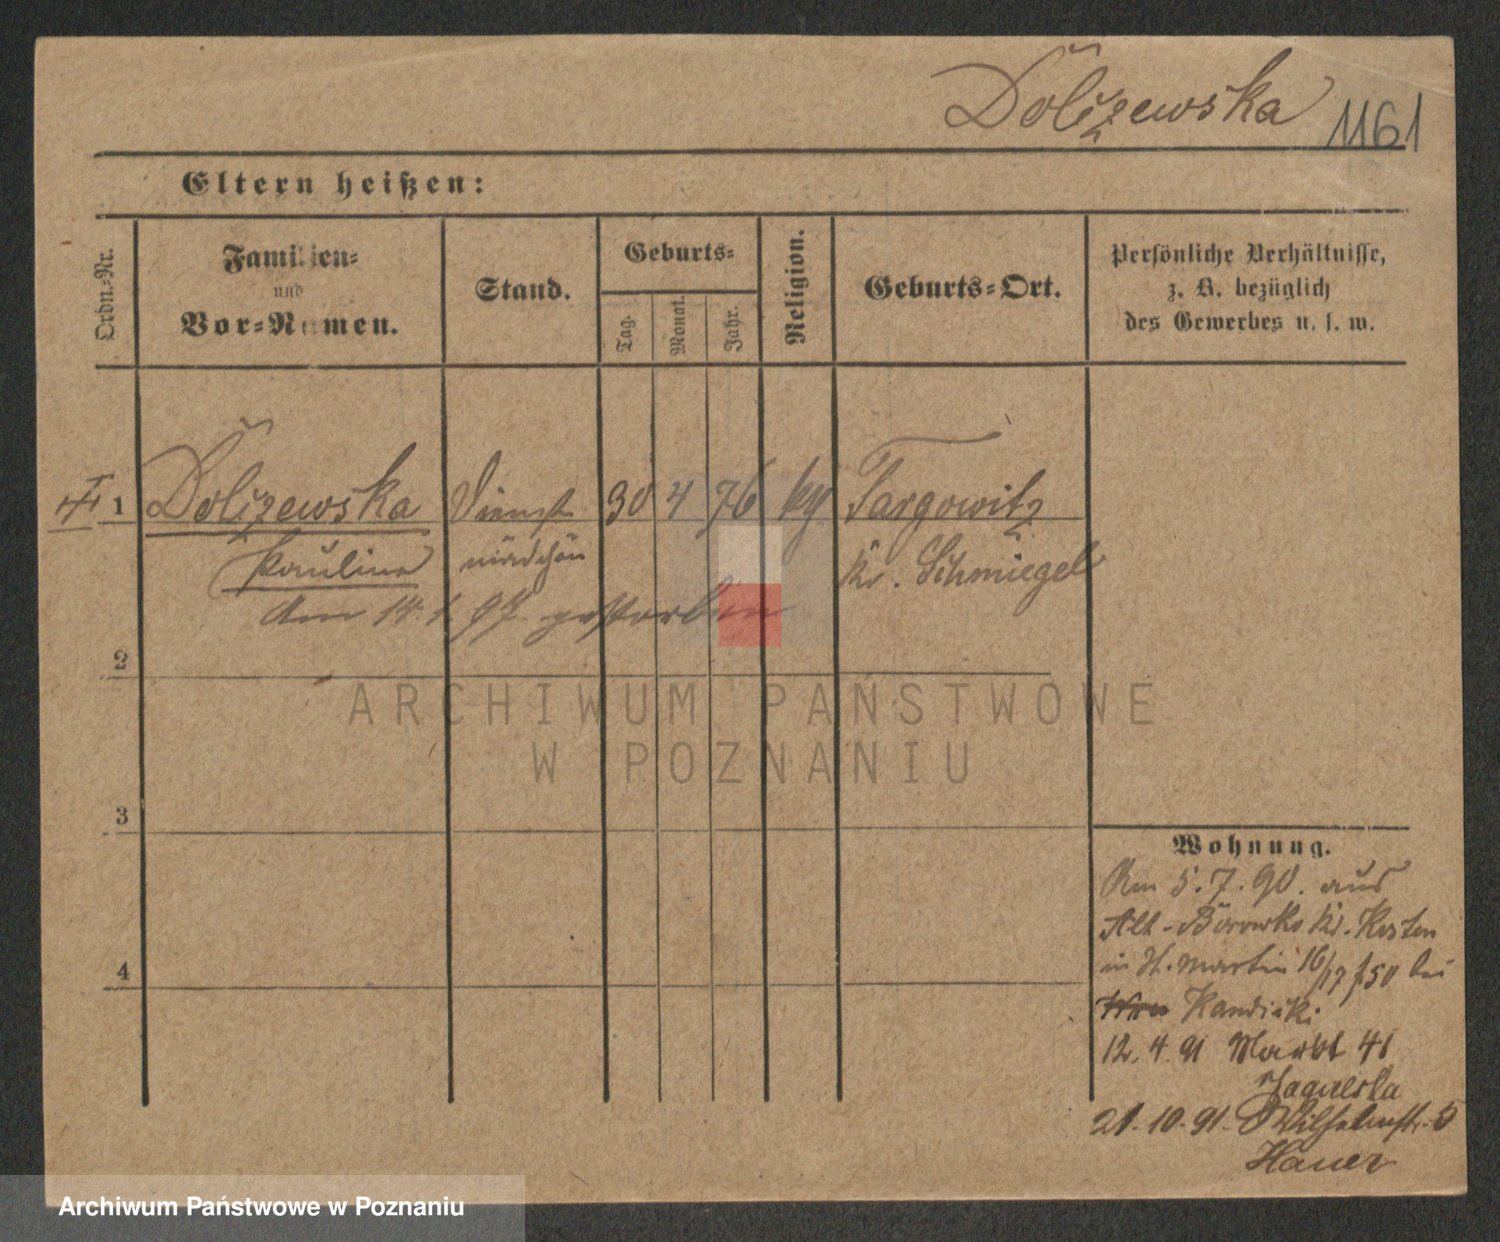 Dolizewska 1161
Eltern heißen:
Ordn.-Nr.
Familien-
und
Vor-Namen.
Stand.
Geburts-
Tag.
Monat.
Jahr.
Religion.
Geburts-Ort.
Persönliche Verhältnisse,
z. B. bezüglich
des Gewerbes u. s. w.
1 Dolizewska Dienst 30 4 76 Targowitz
Pauline mädchen Kr. Schmiegel
Am 14. 1. 97. gestorben
2
3
4
Wohnung.
Am 5. 7. 90. aus
Alt-Borowko Kr. Kosten
in St. Martin 16/17 bei
Kandicki
12. 4. 91 Markt 41
Jagielska
21. 10. 91. Wilhelmstr. 5
Hauer
ARCHIWUM PAŃSTWOWE
W POZNANIU
Archiwum Państwowe w Poznaniu